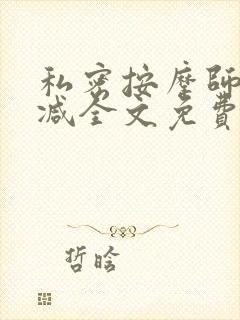 私密按摩師
减全文免費
哲晗